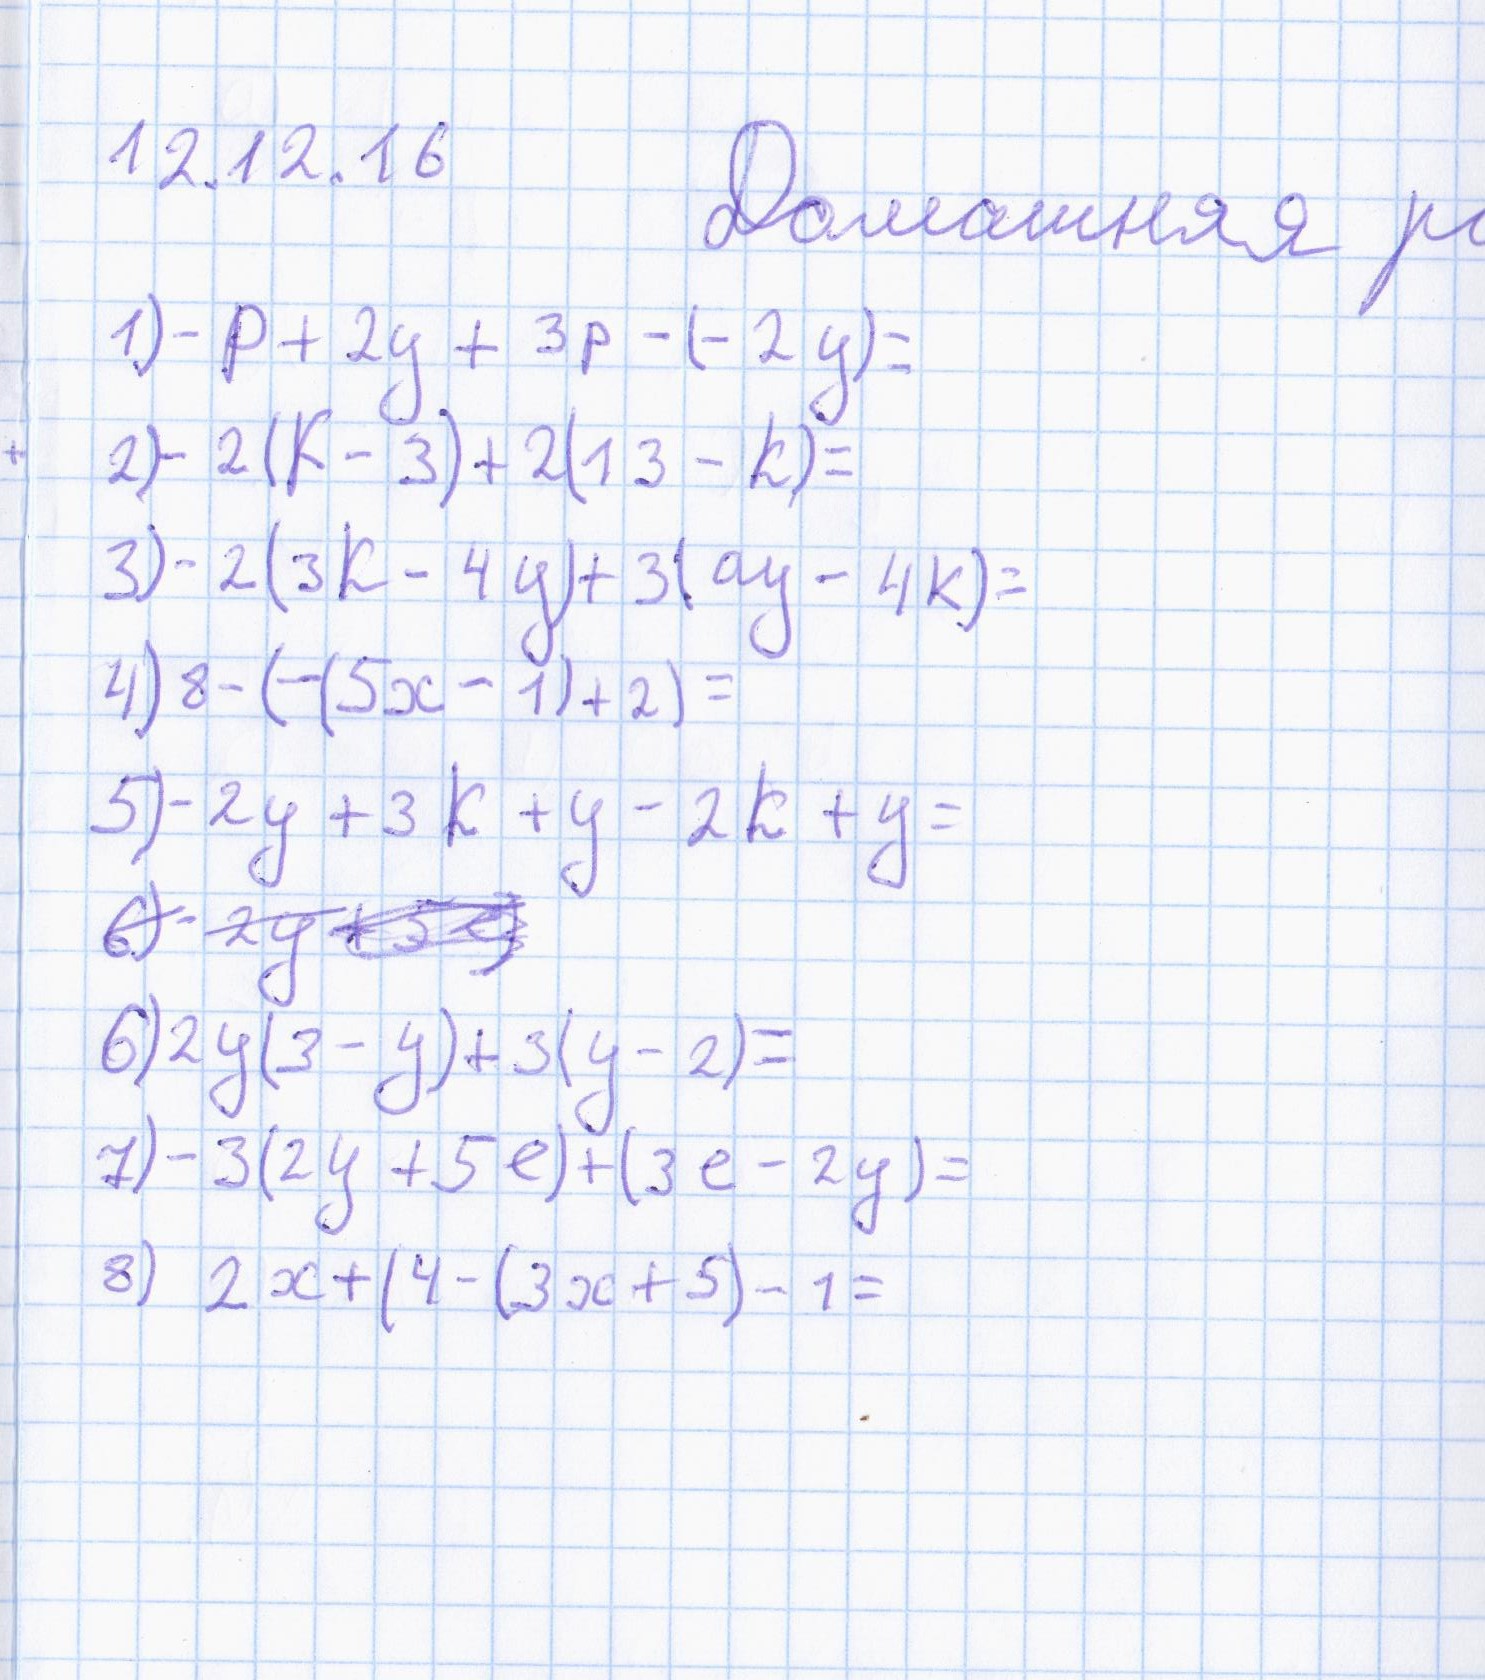 12.12.16 Домашняя ра
1) - p + 2y + 3p - (- 2y) =
2) - 2(k - 3) + 2(13 - k) =
3) - 2(3k - 4y) + 3(ay - 4k) =
4) 8 - (-(5x - 1) + 2) =
5) - 2y + 3k + y - 2k + y =
6) - 2y + 5e)
6) 2y(3 - y) + 3(y - 2) =
7) - 3(2y + 5e) + (3e - 2y) =
8) 2x + (4 - (3x + 5) - 1 =